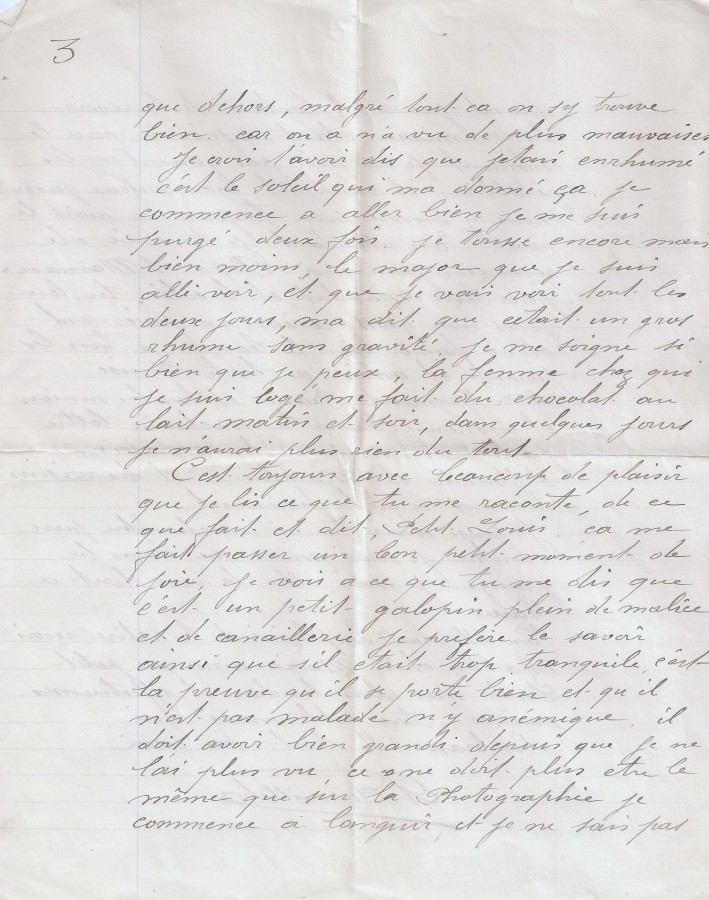 3
que dehors, malgré tout ca on sy trouve
bien. car on a n'a vu de plus mauvaises
Je crois t'avoir dis que jetais enrhumé
c'est le soleil qui ma donné ça. je
commence a aller bien je me suis
purgé deux fois. je tousse encore mais
bien moins, le major que je suis
allé voir, et que je vais voir tout les
deux jours, ma dit que cetait un gros
rhume sans gravité, je me soigne si
bien que je peux, la femme chez qui
je suis logé me fait du chocolat au
lait matin et soir, dans quelques jours
je n'aurai plus rien du tout.
C'est toujours avec beaucoup de plaisir
que je lis ce que tu me raconte, de ce
que fait et dit, Petit Louis, ca me
fait passer un bon petit moment de
joie, je vois a ce que tu me dis que
c'est un petit galopin plein de malice
et de canaillerie je prefère le savoir
ainsi que s'il etait trop tranquile, c'est
la preuve qu'il se porte bien et qu'il
n'est pas malade n'y anémique. il
doit avoir bien grandi depuis que je ne
l'ai plus vu, ce ne doit plus etre le
même que sur la Photographie je
commence a languir, et je ne sais pas